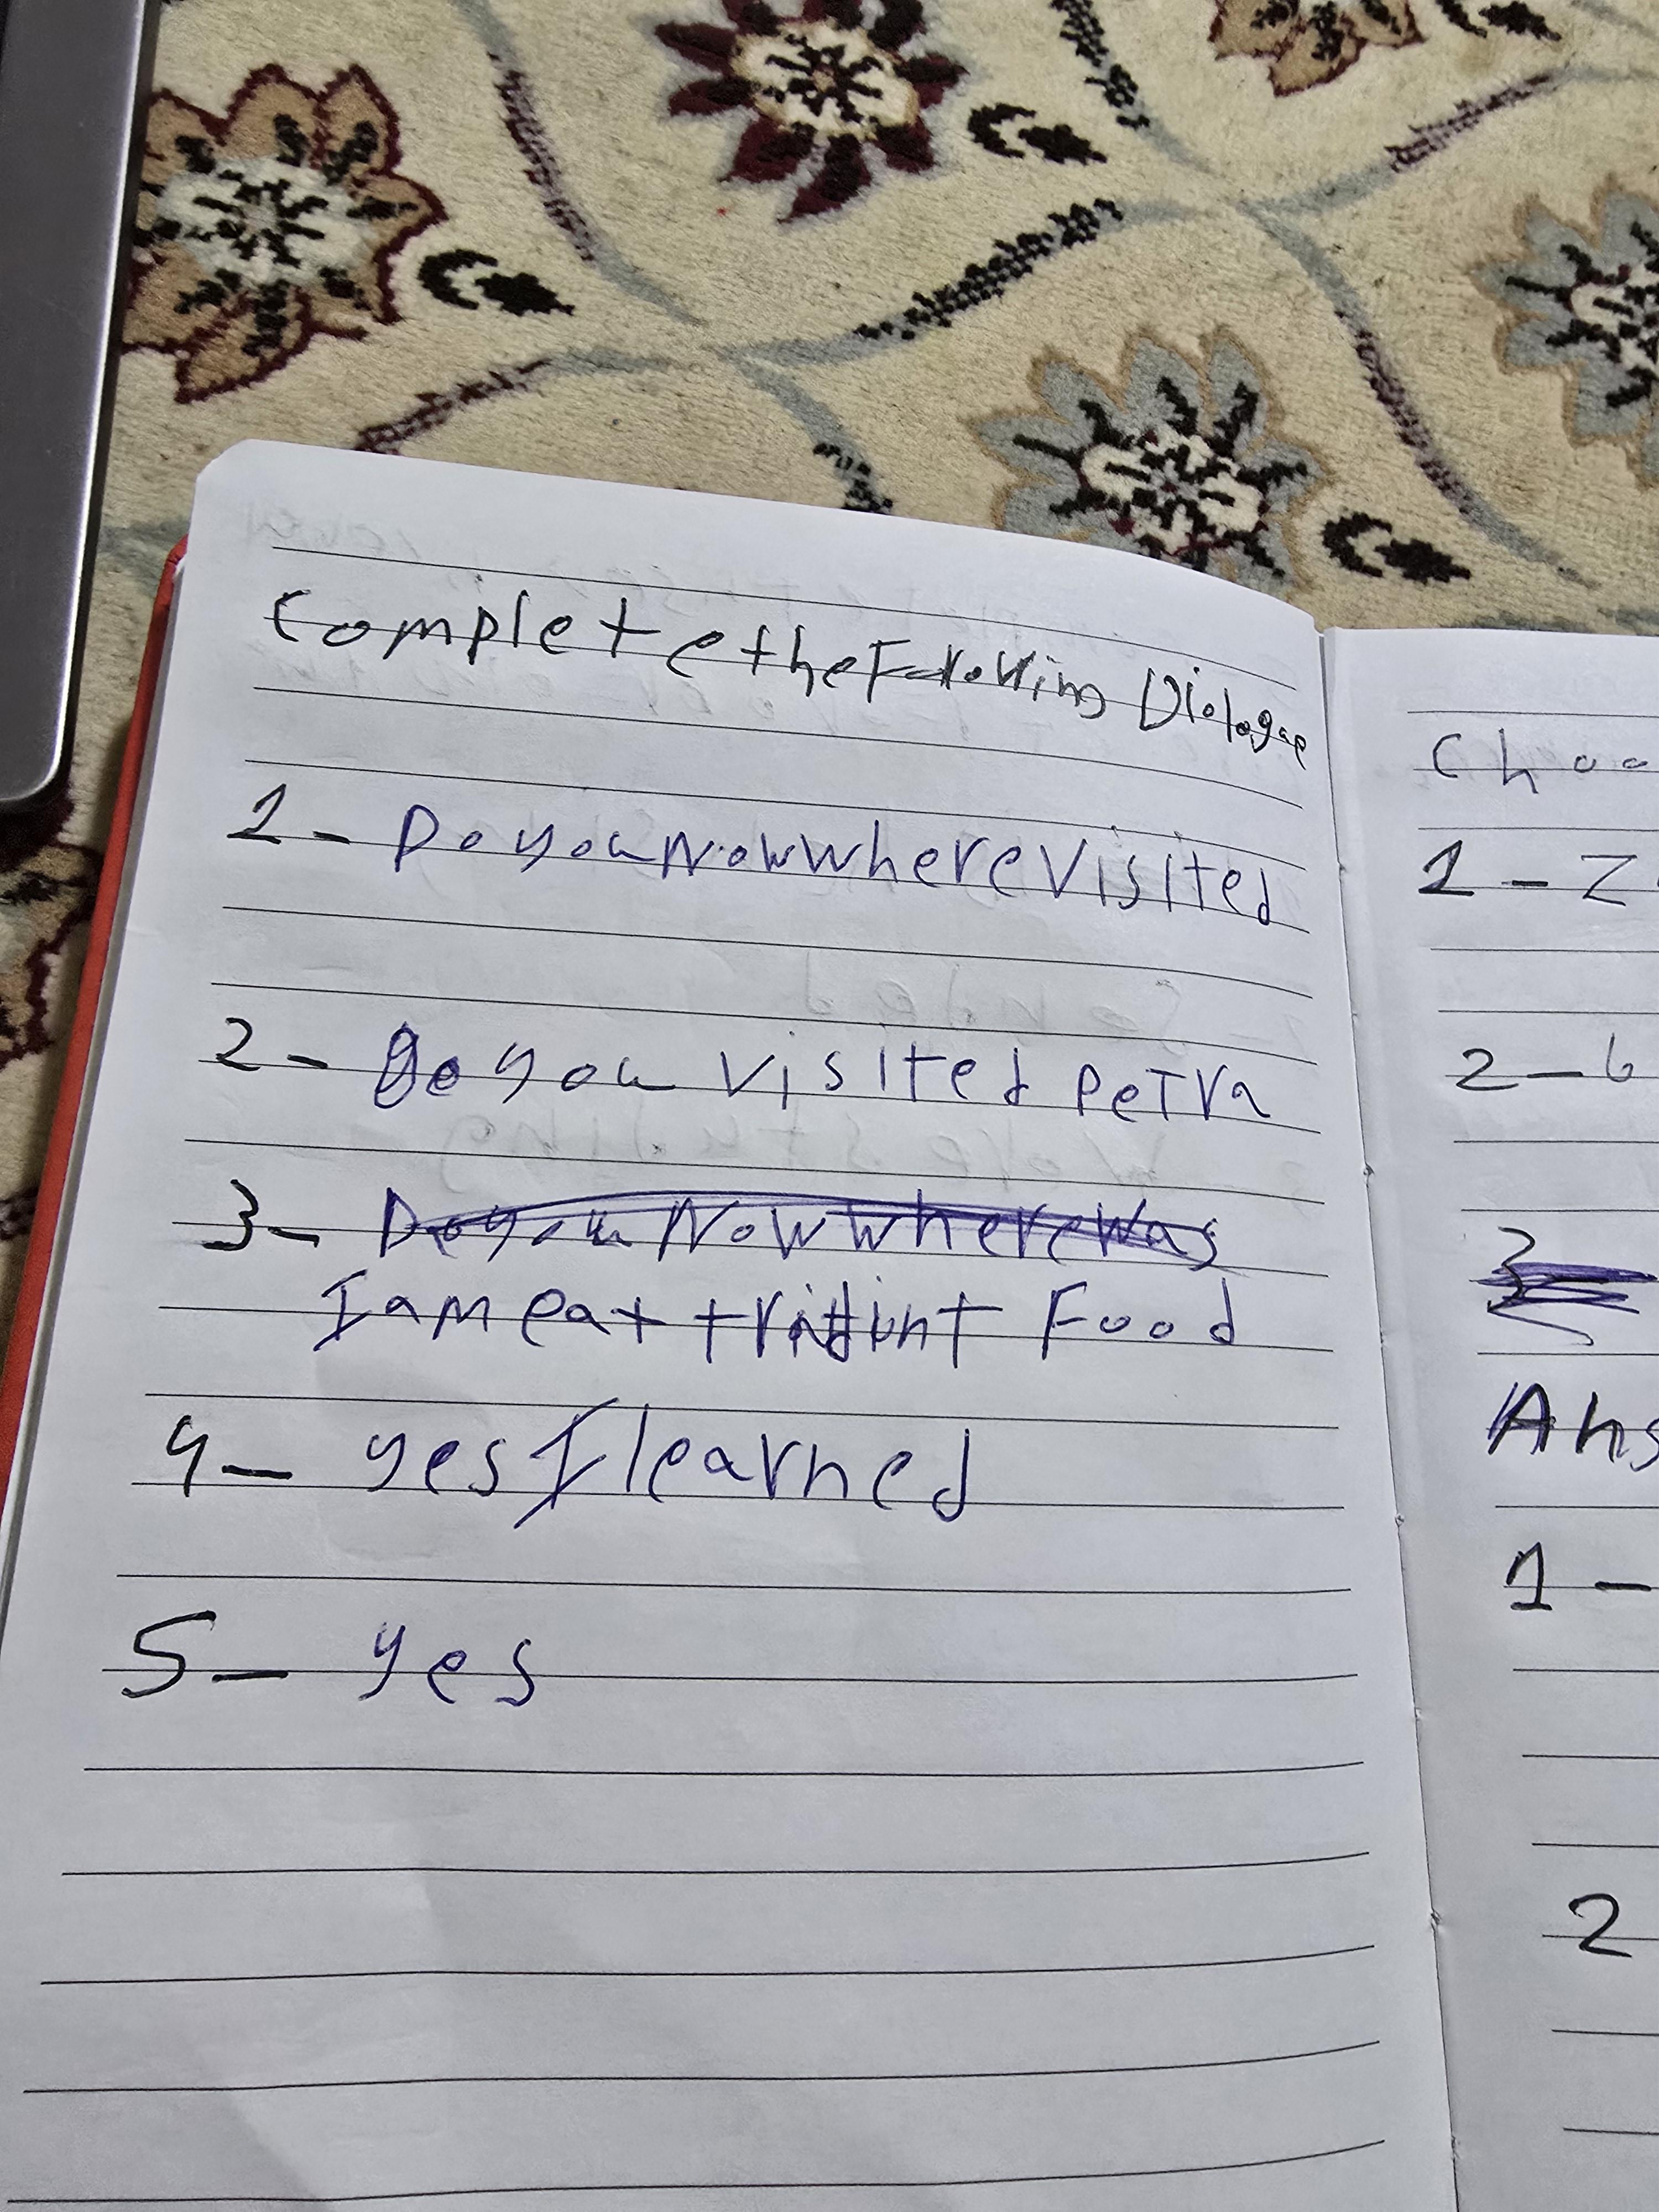 Complete the Following Diologue
1 - Do you Now where Visited
2 - Do you visited PeTra
3 - Do you Now where was
I am eat Food
4 - yes I learned
5 - yes
Choo
1 - Z
2 - 6
3
Ans
1 -
2